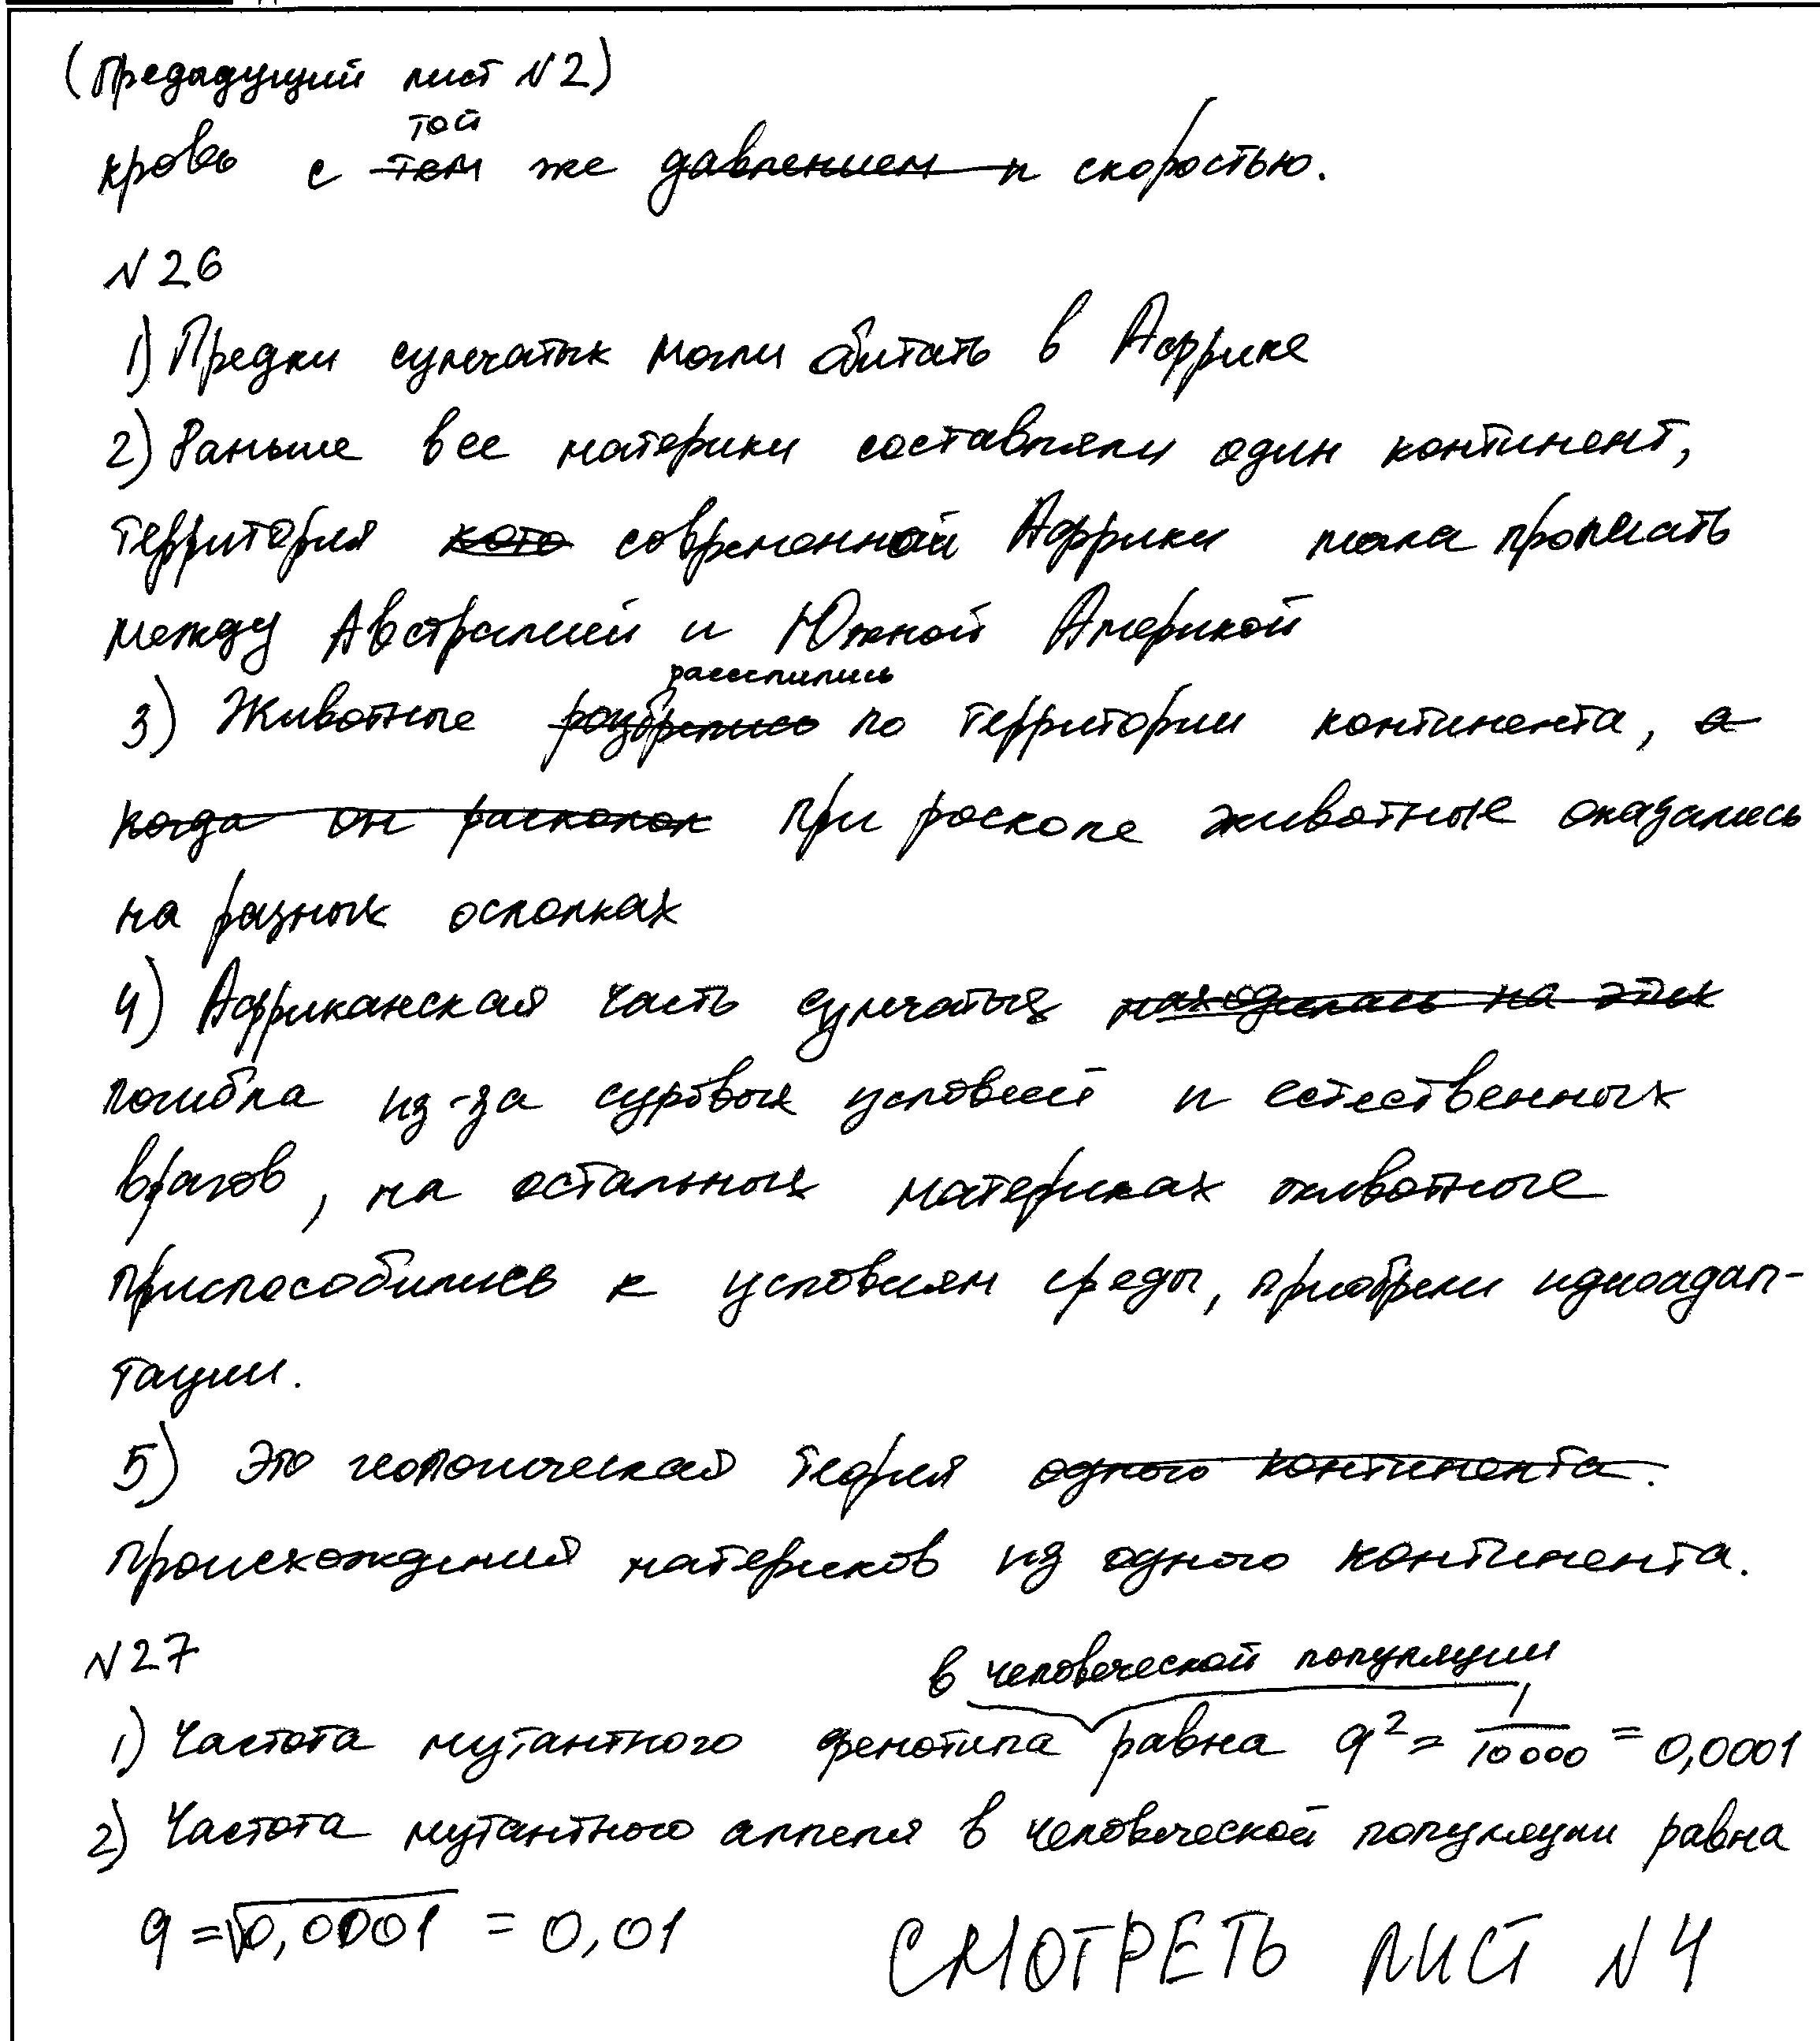 (Предадущий лист №2)
той
кровь с тем же давлением и скоростью.
№26
1) Предки сумчатых могли обитать в Африке
2) Раньше все материки составляли один континент,
территория кото современной Африки могла пролегать
между Австралией и Южной Америкой
расселились
3) Животные разбрелись по территории континента, а
когда он расколол При расколе животные оказались
на разных осколках
4) Африканская часть сумчатых находилась на этих
погибла из-за суровых условий и естественных
врагов, на остальных материках животные
приспособились к условиям среды, приобрели идиоадап-
тации.
5) Это геологическая теория одного континента.
происхождения материков из одного континента.
№27
в человеческой популяции
1) Частота мутантного фенотипа равна q² = 1/10000 = 0,0001
2) Частота мутантного аллеля в человеческой популяции равна
q = √0,0001 = 0,01
СМОТРЕТЬ ЛИСТ №4